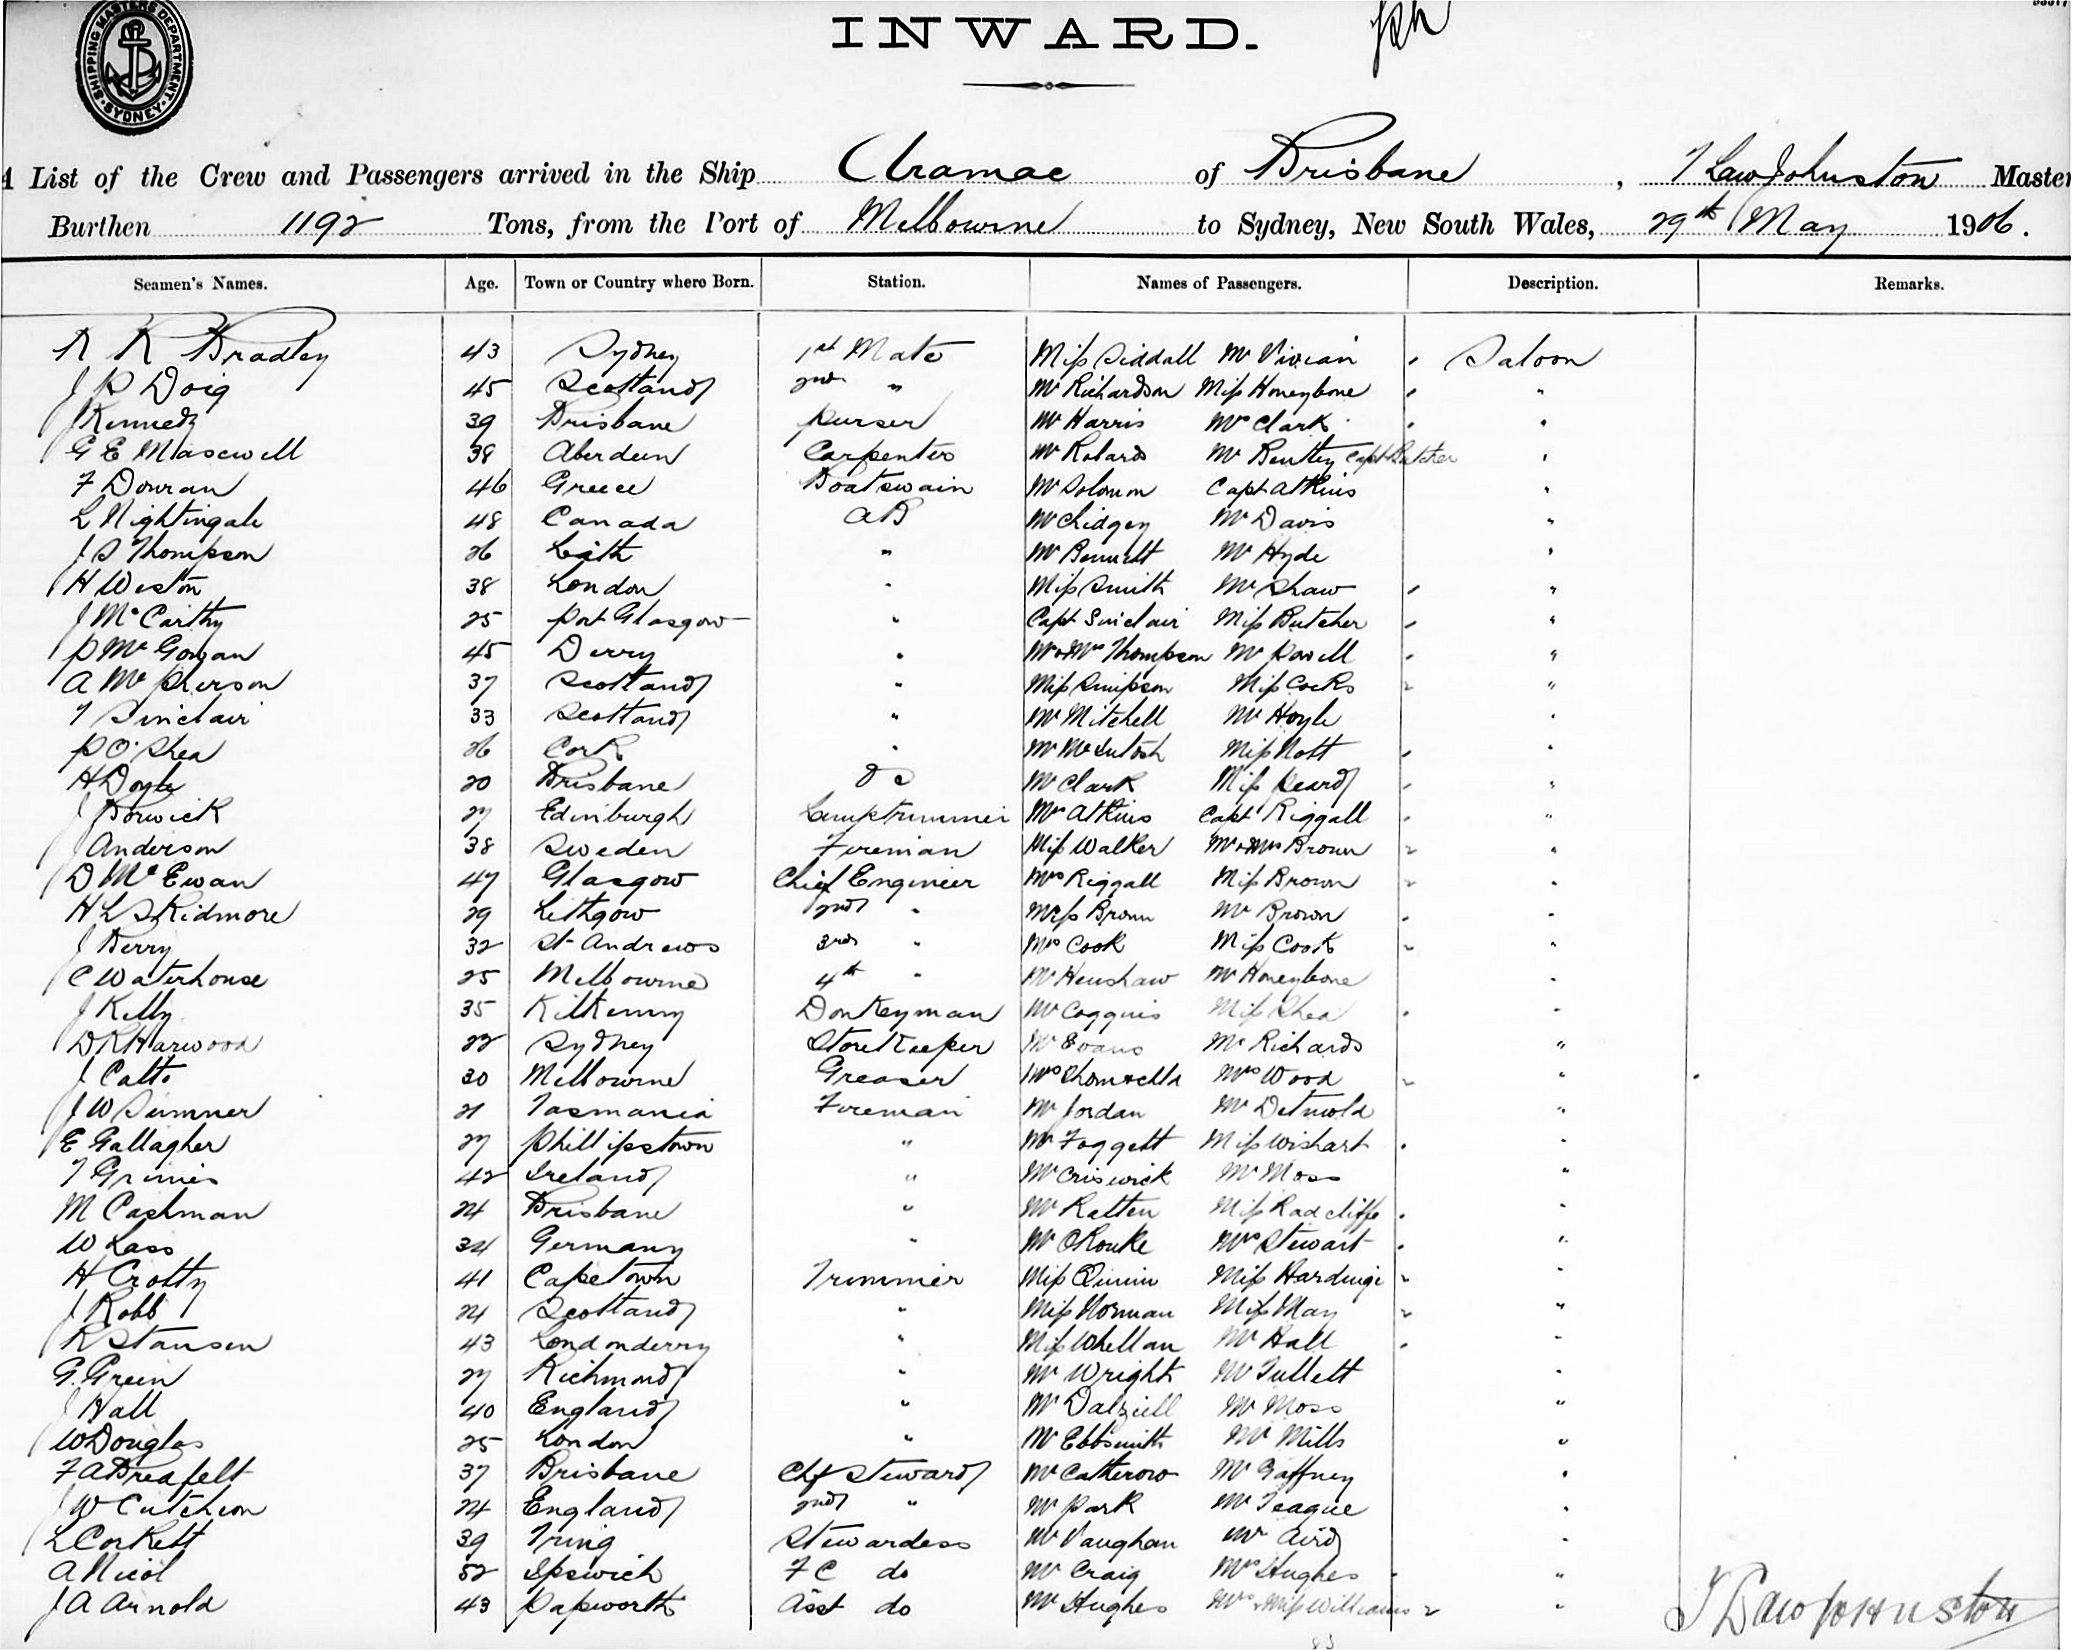 SHIPPING MASTERS DEPARTMENT SYDNEY
INWARD.
A List of the Crew and Passengers arrived in the Ship Aramac of Brisbane, T Law Johnston Master
Burthen 1192 Tons, from the Port of Melbourne to Sydney, New South Wales, 29th May 1906.
Seamen's Names. Age. Town or Country where Born. Station. Names of Passengers. Description. Remarks.
R R Bradley 43 Sydney 1st Mate Miss Siddall Mr Vivian Saloon
J P Doig 45 Scotland 2nd " Mr Richardson Miss Honeybone "
J Kennedy 39 Brisbane Purser Mr Harris Mrs Clark "
G E Maxwell 38 Aberdeen Carpenter Mr Robards Mr Bentley Capt Butcher "
F Douran 46 Greece Boatswain Mr Solomon Capt Atkins "
L Nightingale 48 Canada AB Mr Lidgey Mr Davis "
J S Thompson 26 Leith " Mr Bennett Mr Hyde "
H Weston 38 London " Miss Smith Mr Shaw "
J McCarthy 25 Port Glasgow " Capt Sinclair Miss Butcher "
P McGowan 45 Derry " Mr & Mrs Thompson Mr Powell "
A McPherson 37 Scotland " Miss Simpson Miss Cocks "
T Sinclair 33 Scotland " Mr Mitchell Mr Hoyle "
P O'Shea 26 Cork " Mr McIntosh Miss Nott "
H Doyle 20 Brisbane OS Mr Clark Miss Peard "
J Borwick 27 Edinburgh Lamptrimmer Mrs Atkins Capt Riggall "
J Anderson 38 Sweden Fireman Miss Walker Mr & Mrs Brown "
D McEwan 47 Glasgow Chief Engineer Mrs Riggall Miss Brown "
H L Skidmore 29 Lithgow 2nd " Miss Brown Mr Brown "
J Berry 32 St Andrews 3rd " Mrs Cook Miss Cook "
C Waterhouse 25 Melbourne 4th " Mr Henshaw Mr Honeybone "
J Kelly 35 Kilkenny Donkeyman Mr Coggins Miss Shea "
D R Harwood 22 Sydney Storekeeper Mr Evans Mr Richards "
J Calto 30 Melbourne Greaser Mrs Mrs Wood "
J W Sumner 21 Tasmania Fireman Mr Jordan Mr Detmold "
E Gallagher 27 Phillipstown " Mr Foggett Miss Wishart "
T Grimes 42 Ireland " Mr Criswick Mr Moss "
M Cashman 24 Brisbane " Mr Ratten Miss Radcliffe "
W Lass 34 Germany " Mr O'Rouke Mrs Stewart "
H Crotty 41 Capetown Trimmer Miss Quinn Miss Hardinge "
J Robb 24 Scotland " Miss Norman Miss May "
R Stansen 43 Londonderry " Miss Whellan Mr Hall "
G. Green 27 Richmond " Mr Wright Mr Tullett "
J Hall 40 England " Mr Dalziell Mr Moss "
W Douglas 25 London " Mr Ebbsmith Mr Mills "
F A Breafelt 37 Brisbane Chf Steward Mr Catherow Mr Gaffney "
J W Cutcheon 24 England 2nd " Mr Park Mr Teague "
L Corkett 39 Tring Stewardess Mr Vaughan Mr Aird "
A Nicol 52 Ipswich F C do Mr Craig Mrs Hughes "
J A Arnold 43 Papworth Asst do Mr Hughes Mrs & Miss Williams "
T Law Johnston
83